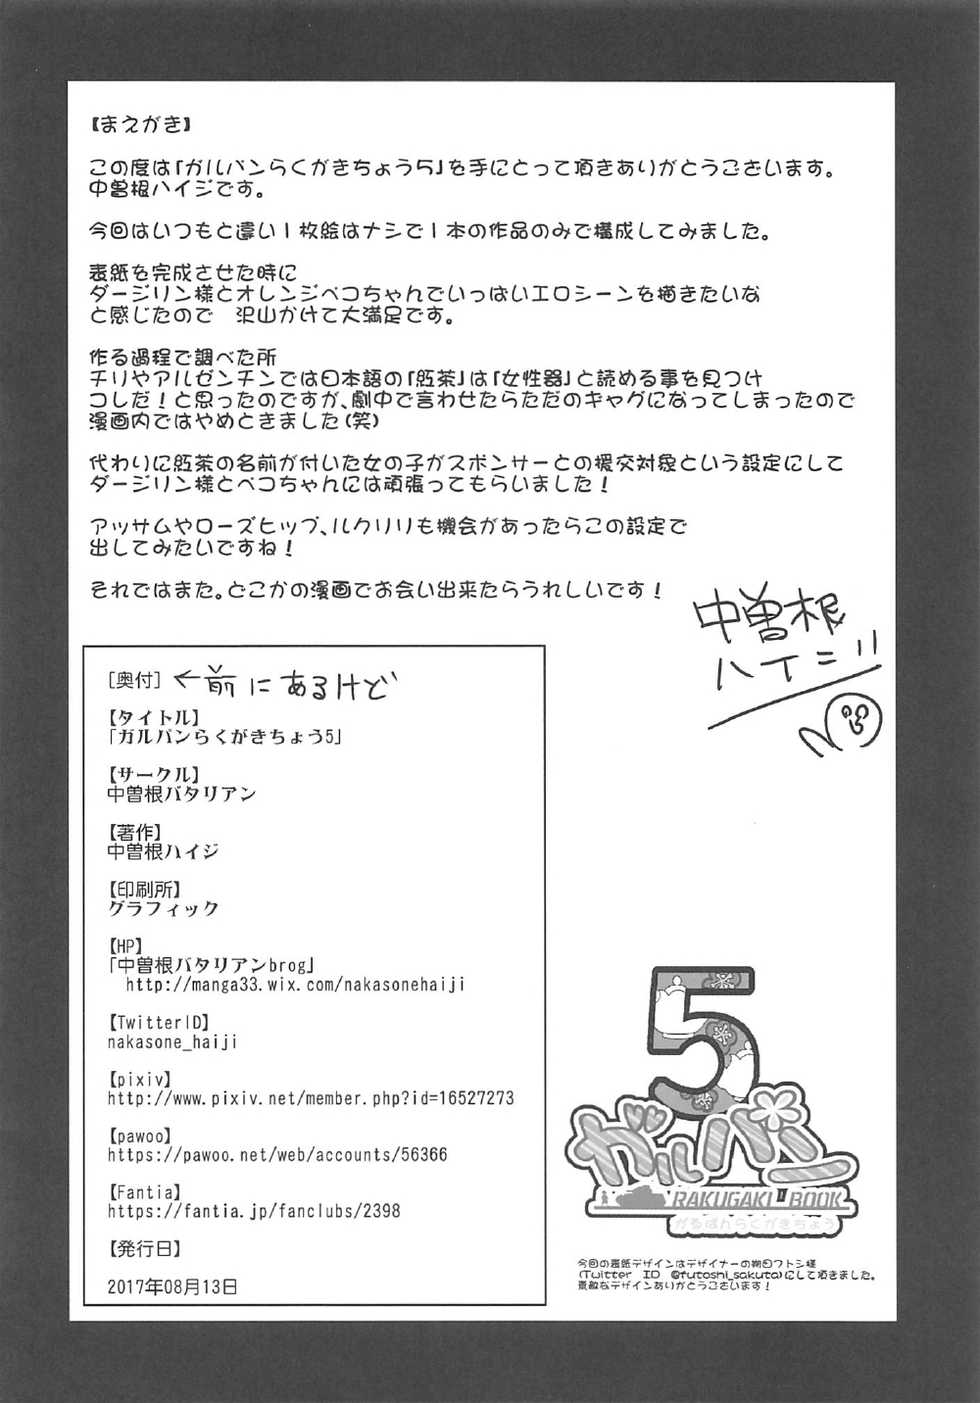 【まえがき】
この度は「ガルパンらくがきちょう5」を手にとって頂きありがとうございます。
中曽根ハイジです。
今回はいつもと違い1枚絵はナシで1本の作品のみで構成してみました。
表紙を完成させた時に
ダージリン様とオレンジペコちゃんでいっぱいエロシーンを描きたいな
と感じたので　沢山かけて大満足です。
作る過程で調べた所
チリやアルゼンチンでは日本語の「紅茶」は「女性器」と読める事を見つけ
コレだ！と思ったのですが、劇中で言わせたらただのギャグになってしまったので
漫画内ではやめときました(笑)
代わりに紅茶の名前が付いた女の子がスポンサーとの援交対象という設定にして
ダージリン様とペコちゃんには頑張ってもらいました！
アッサムやローズヒップ、ルクリリも機会があったらこの設定で
出してみたいですね！
それではまた。どこかの漫画でお会い出来たらうれしいです！
中曽根
ハイジ
[奥付]←前にあるけど
【タイトル】
「ガルパンらくがきちょう5」
【サークル】
中曽根バタリアン
【著作】
中曽根ハイジ
【印刷所】
グラフィック
【HP】
「中曽根バタリアンbrog」
http://manga33.wix.com/nakasonehaiji
【TwitterID】
nakasone_haiji
【pixiv】
http://www.pixiv.net/member.php?id=16527273
【pawoo】
https://pawoo.net/web/accounts/56366
【Fantia】
https://fantia.jp/fanclubs/2398
【発行日】
2017年08月13日
5
ガルパン
RAKUGAKI BOOK
がるぱんらくがきちょう
今回の表紙デザインはデザイナーの朔日フトシ様
(Twitter ID @futoshi_sakuta)にして頂きました。
素敵なデザインありがとうございます！